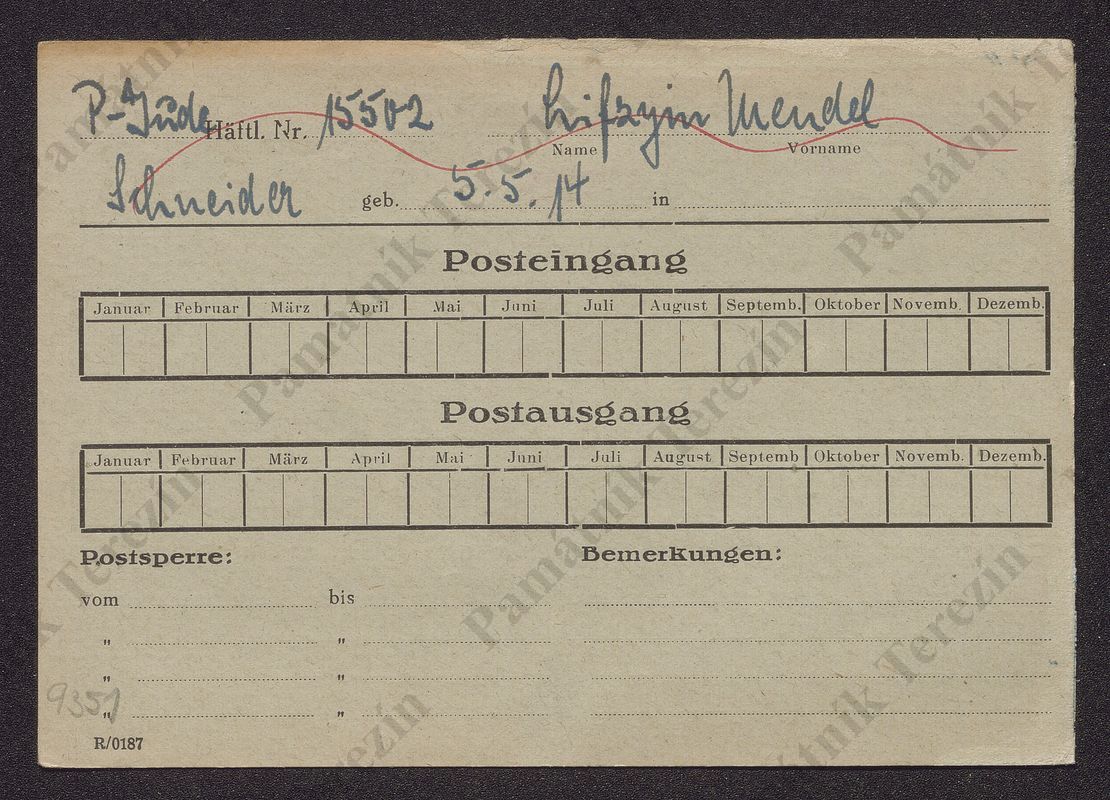 P-Jude Häftl. Nr. 15502 Lifszyin Mendel
Name Vorname
Schneider geb. 5.5.14 in
Posteingang
Januar Februar März April Mai Juni Juli August Septemb. Oktober Novemb. Dezemb.
Postausgang
Januar Februar März April Mai Juni Juli August Septemb Oktober Novemb. Dezemb.
Postsperre: Bemerkungen:
vom bis
" "
" "
" "
9351
R/0187
Památník Terezín